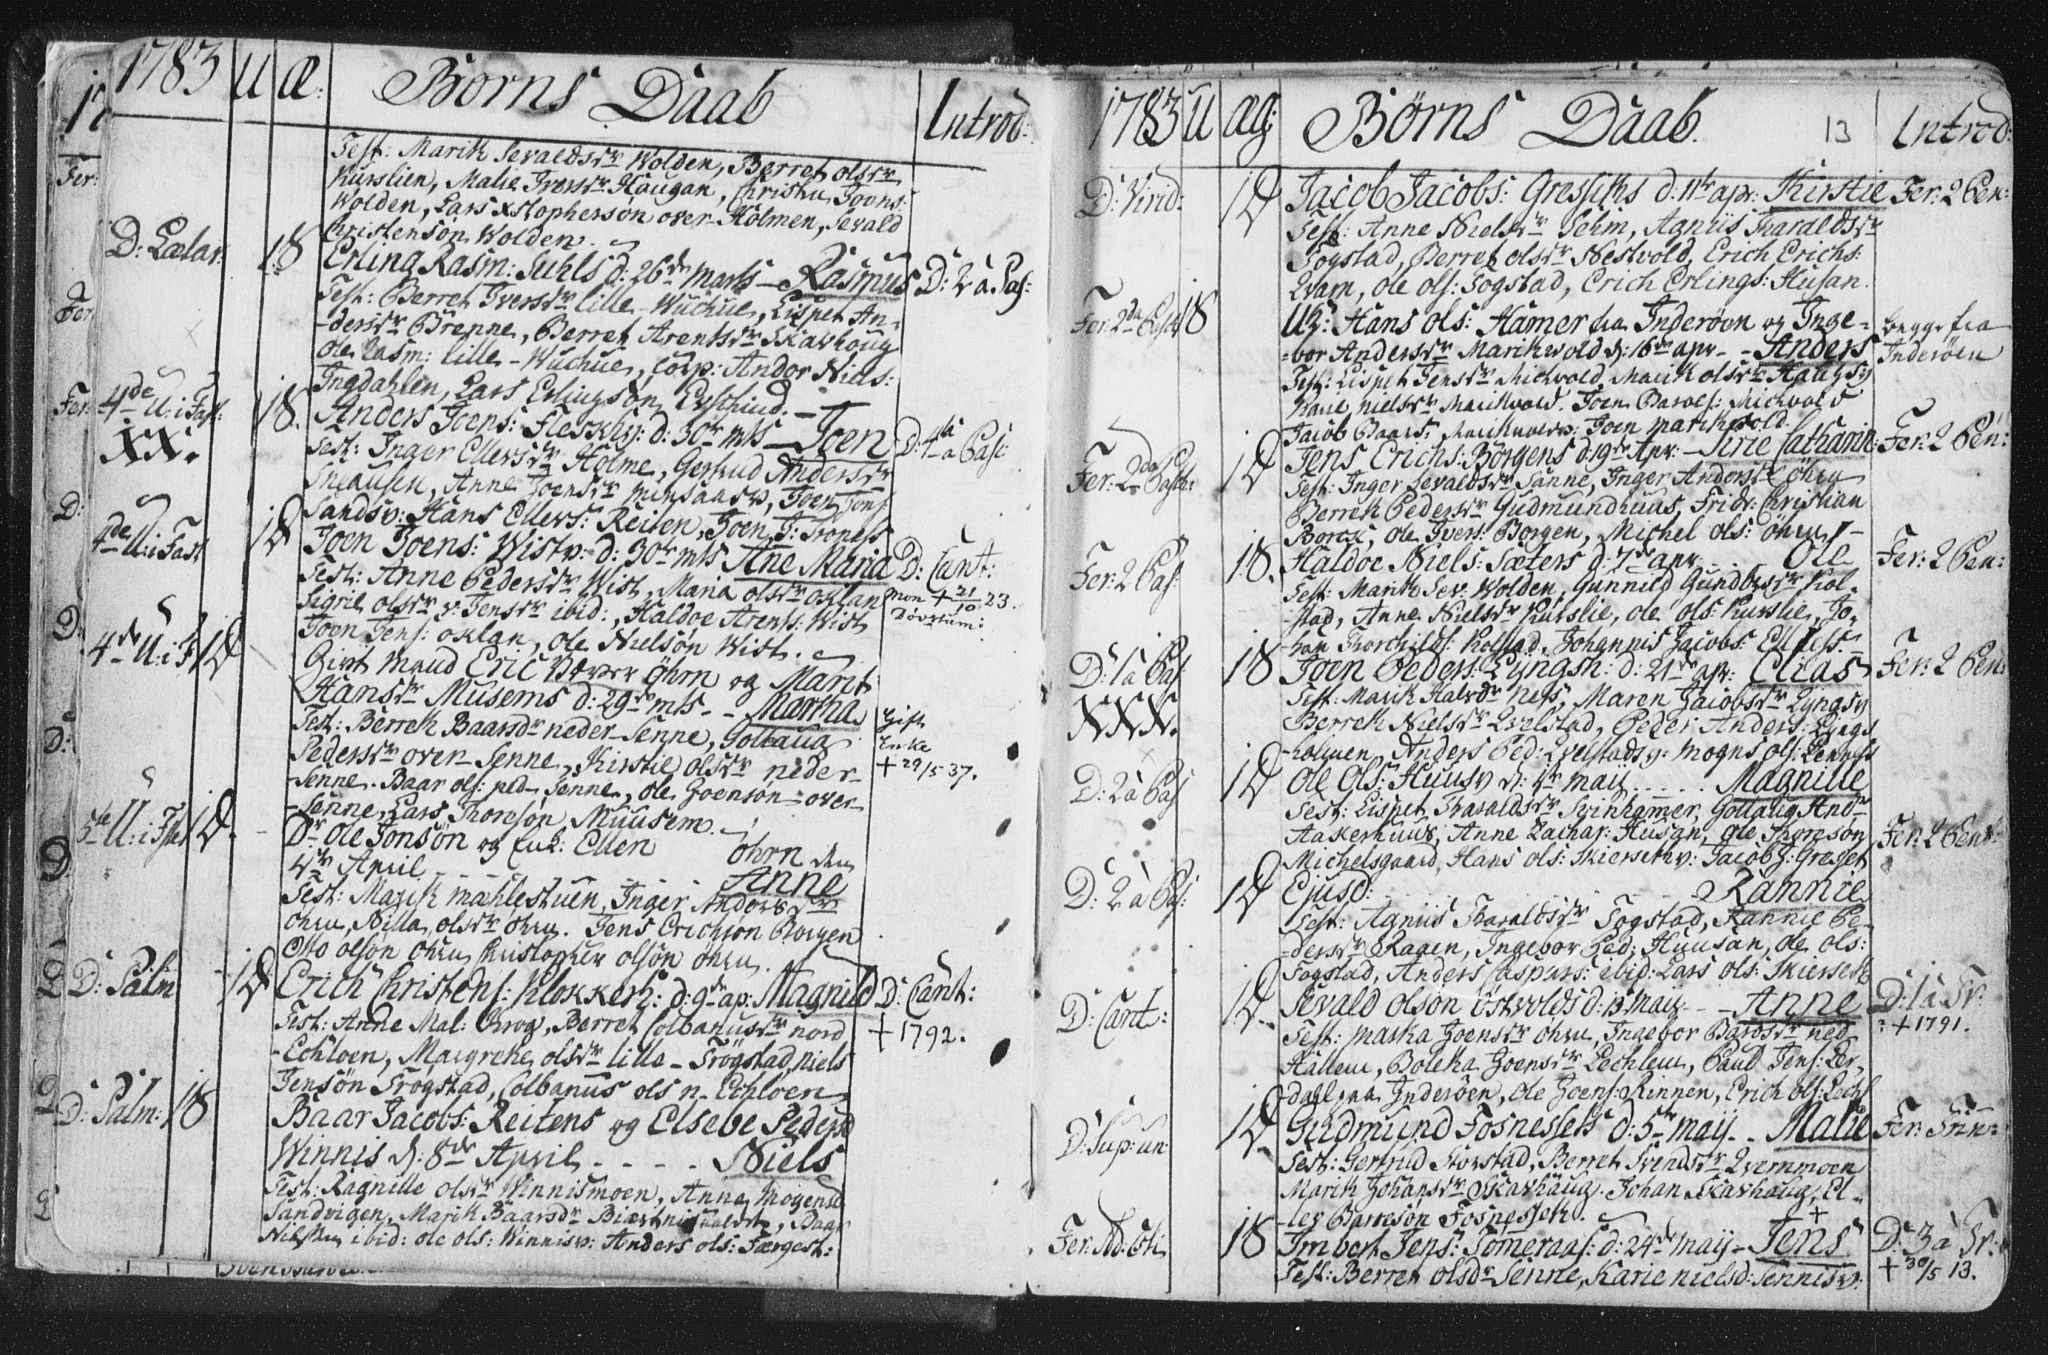 1783 U Æ: Børns Daab Introd:
Test: Marit Sevaldsdr Wolden, Berret olsdr
Kurslien, Malie Iversdr Haugan, Christen Joens:
Wolden, Lars Xstophersøn over-Holmen, Sevald
Christensøn Wolden.
D: Lætar: 1 D Erling Rasm: Suhls d: 26de Marts - Rasmus D: 2 a Pas:
Test: Berret Iversdr lille-Wuchue, Lispet An-
-dersdr Brenne, Berret Arentsdr Skavhoug
ole Rasm: lille-Wuchue, Corp: Andor Niels:
Ingdahlen, Lars Erlingsøn
4de U: i Fast: 1 D. Anders Joens: d: 30te mts - Joen D: 4de a Pas:
XX.
Test: Inger Ellevsdr Holme, Gertrud Andersdr
Snausen, Anne Joensdr Joen Jons:
Sandsv: Hans Ellevs: Reiten, Joen J:
4de U: i Fast 1 D Joen Joens: Wists: d: 30te mts Ane Maria D: Cant:
Test: Anne Pedersdr Wist, Maria olsdr oxlan mon + 21/10 23.
Sigril olsdr v: Jensdr ibid:, Haldoe Arents: Wist
Joen Jens: oxlan, ole Nielsøn Wist.
4de U: i F 1 D Gift Mand Eric Bæver Øhrn og Marit
Hansdr Musems d: 29de mts - Martha
Test: Berreth Baarsdr neder-Senne, Gollaug Gift
Pedersdr over-Senne, Kirstie olsdr neder- Enke
-Senne. Baar ols: ned-Senne, ole Joensøn-over + 29/5 37.
-Senne, Lars Thoresøn Muusem.
5te U: i Fast 1 D. Dr ole Jonsøn og Enk: Ellen Øhrn den
4de April - Anne
Test: Marit mæhlestuen, Inger Andersdr
Øhrn, Nilla olsdr Øhrn. Jens Erichsøn Borgen
Otto olsøn Øhrn Christopher olsøn Øhrn.
D: Palm 1 D Erich Christens: Klokkerh: d: 9de ap: Magnild D: Cant:
Test: Anne Mal: Krog, Berret Colbanusdr nord + 1792.
-Echloen, Margrethe olsdr lille-Frøgstad, Niels
Jensøn Frøgstad, Colbanus ols n-Echloen
D: Palm: 1 D Baar Jacobs: Reitens og Elsebe Pedersd
Winnis d: 8de April - Niels
Test: Ragnille olsdr Winnismoen, Anne Mogensd
Sandvigen, Marit Baarsdr Baar
ibid: ole ols: Winnisv: Anders ols: Færgest:
1783 U æg: Børns Daab. 13 Introd:
D: Virid: 1 D Jacob Jacobs: Gresseths d: 11te apr: Kirstie Fer: 2 Pen:
Test: Anne Nielsdr Sehm, Agniis Tharaldsdr
Fogstad, Berret olsdr Nestvold, Erich Erichs:
Qvam, ole ols: Fogstad, Erich Erlings: Husan.
Fer: 2da Pasch 1 D Ug: Hans ols: Hamer fra Inderøen og Inge- begge fra
-bor Andersdr Marithvold d: 16de apr - Anders Inderøen
Test: Lispet Jensdr Marit olsdr
Karie Nielsdr Marithvold. Joen
Jacob Baars: Joen Marithvold.
Fer: 2da Pasch: 1 D Jens Erichs: Borgens d: 19de Apr: - Seric Catharin: Fer: 2 Pen:
Test: Inger Sevaldsdr Sanne, Inger Andersdr Øhrn
Berreth Pedersdr Gudmundhuus, Fridr: Christian
ole Ivers: Borgen, Michel ols: Øhrn
Fer: 2 Pas: 1 D. Haldoe Niels: Sæters d: 7de apr - Ole Fer: 2 Pen:
Test: Marit Sev: Wolden, Gunnild Gundbrsdr Kol-
-stad, Anne Nielsdr Kurslie, ole ols: Kurslie, Jo-
-han Thorchilds: Kolstad, Johannis Jacobs:
D: 1 a Pas 1 D Joen Peders: Lyngsh: d: 21de apr: Elias Fer: 2 Pen:
XXX.
Test: Marit Halvdr Ness, Maren Jacobsdr Lyngsv
Berreth Nielsdr Qvelstad, Peder Anders: Lyngs
-holmen, Anders Ped: Qvelstadsv: Mogns ols:
D: 2 a Pas 1 D Ole Ols: Huusv d: 4de maij - Magnille
Test: Lispet Tharaldsdr Svinhamer, Gollaug Andr
Aakerhuus, Anne Zachar: Husan, ole Thoresøn Fer: 2 Pent:
Michelsgaard, Hans ols: Skiersethv: Jacob J: Gresset
D: 2 a Pas: 1 D Ejusd: - Rannie
Test: Agniis Tharaldsdr Fogstad, Rannie Pe-
-dersdr Ragen, Ingebor Ped: Huusan, ole ols:
Fogstad, Anders Caspars: ibid: Lars ols: Skierseth
D: Cant: 1 D. Sevald olsøn østvolds d: 13 maij - Anne D: 1 a Tr:
Test: Martha Joensdr Øhrn, Ingebor Baarsdr ned + 1791.
Hallem, Boletha Joensdr Lechlem, Paul Jens: Ler-
dahl paa Inderøen, Ole Joens: Rinnen, Erich ols: Lechl
D: Sup: un 1 D Gudmund Fosnesseth d: 5te maij - Malie Fer: Trin:
Test: Gertrud Storstad, Berret Svendsdr Qvernmoen
Marit Johansdr Skavhaug. Johan Skavhaug, El-
-lev Baarsøn Fosnesseth.
Fer: Ad: Chr: 1 D Imbert Jens: Someraas: d: 24de maij - Jens + D: 3 a Tr:
Test: Berret olsdr Senne, Karie Nielsd: Sennisv: + 30/5 13.